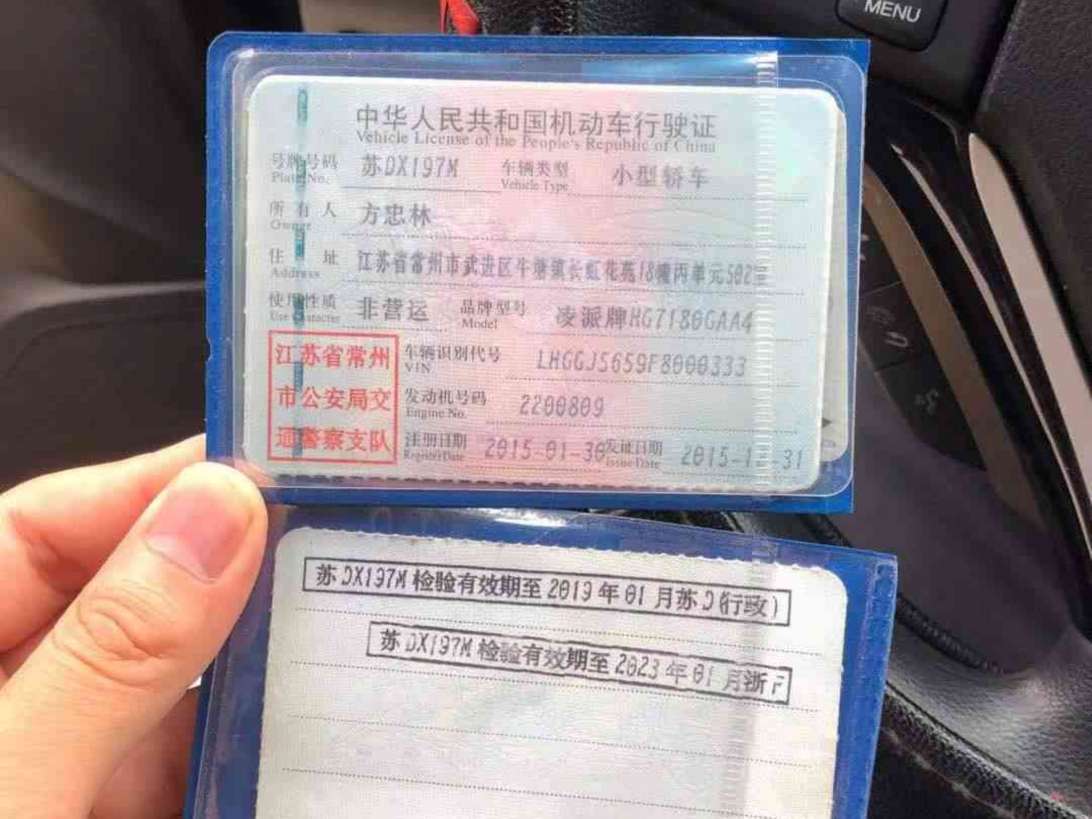 MENU
中华人民共和国机动车行驶证
Vehicle License of the People's Republic of China
号牌号码 苏DX197M 车辆类型 小型轿车
Plate No. Vehicle Type
所有人 方忠林
Owner
住址 江苏省常州市武进区牛塘镇长虹花苑18幢丙单元502室
Address
使用性质 非营运 品牌型号 凌派牌HG7180GAA4
Use Character Model
江苏省常州
市公安局交
通警察支队
车辆识别代号 LHGGJ5659F8000333
VIN
发动机号码 2200809
Engine No.
注册日期 2015-01-30 发证日期 2015-1 -31
Register Date Issue Date
苏DX197M 检验有效期至 2019 年 01 月苏D(行政)
苏DX197M 检验有效期至 2023 年 01 月浙